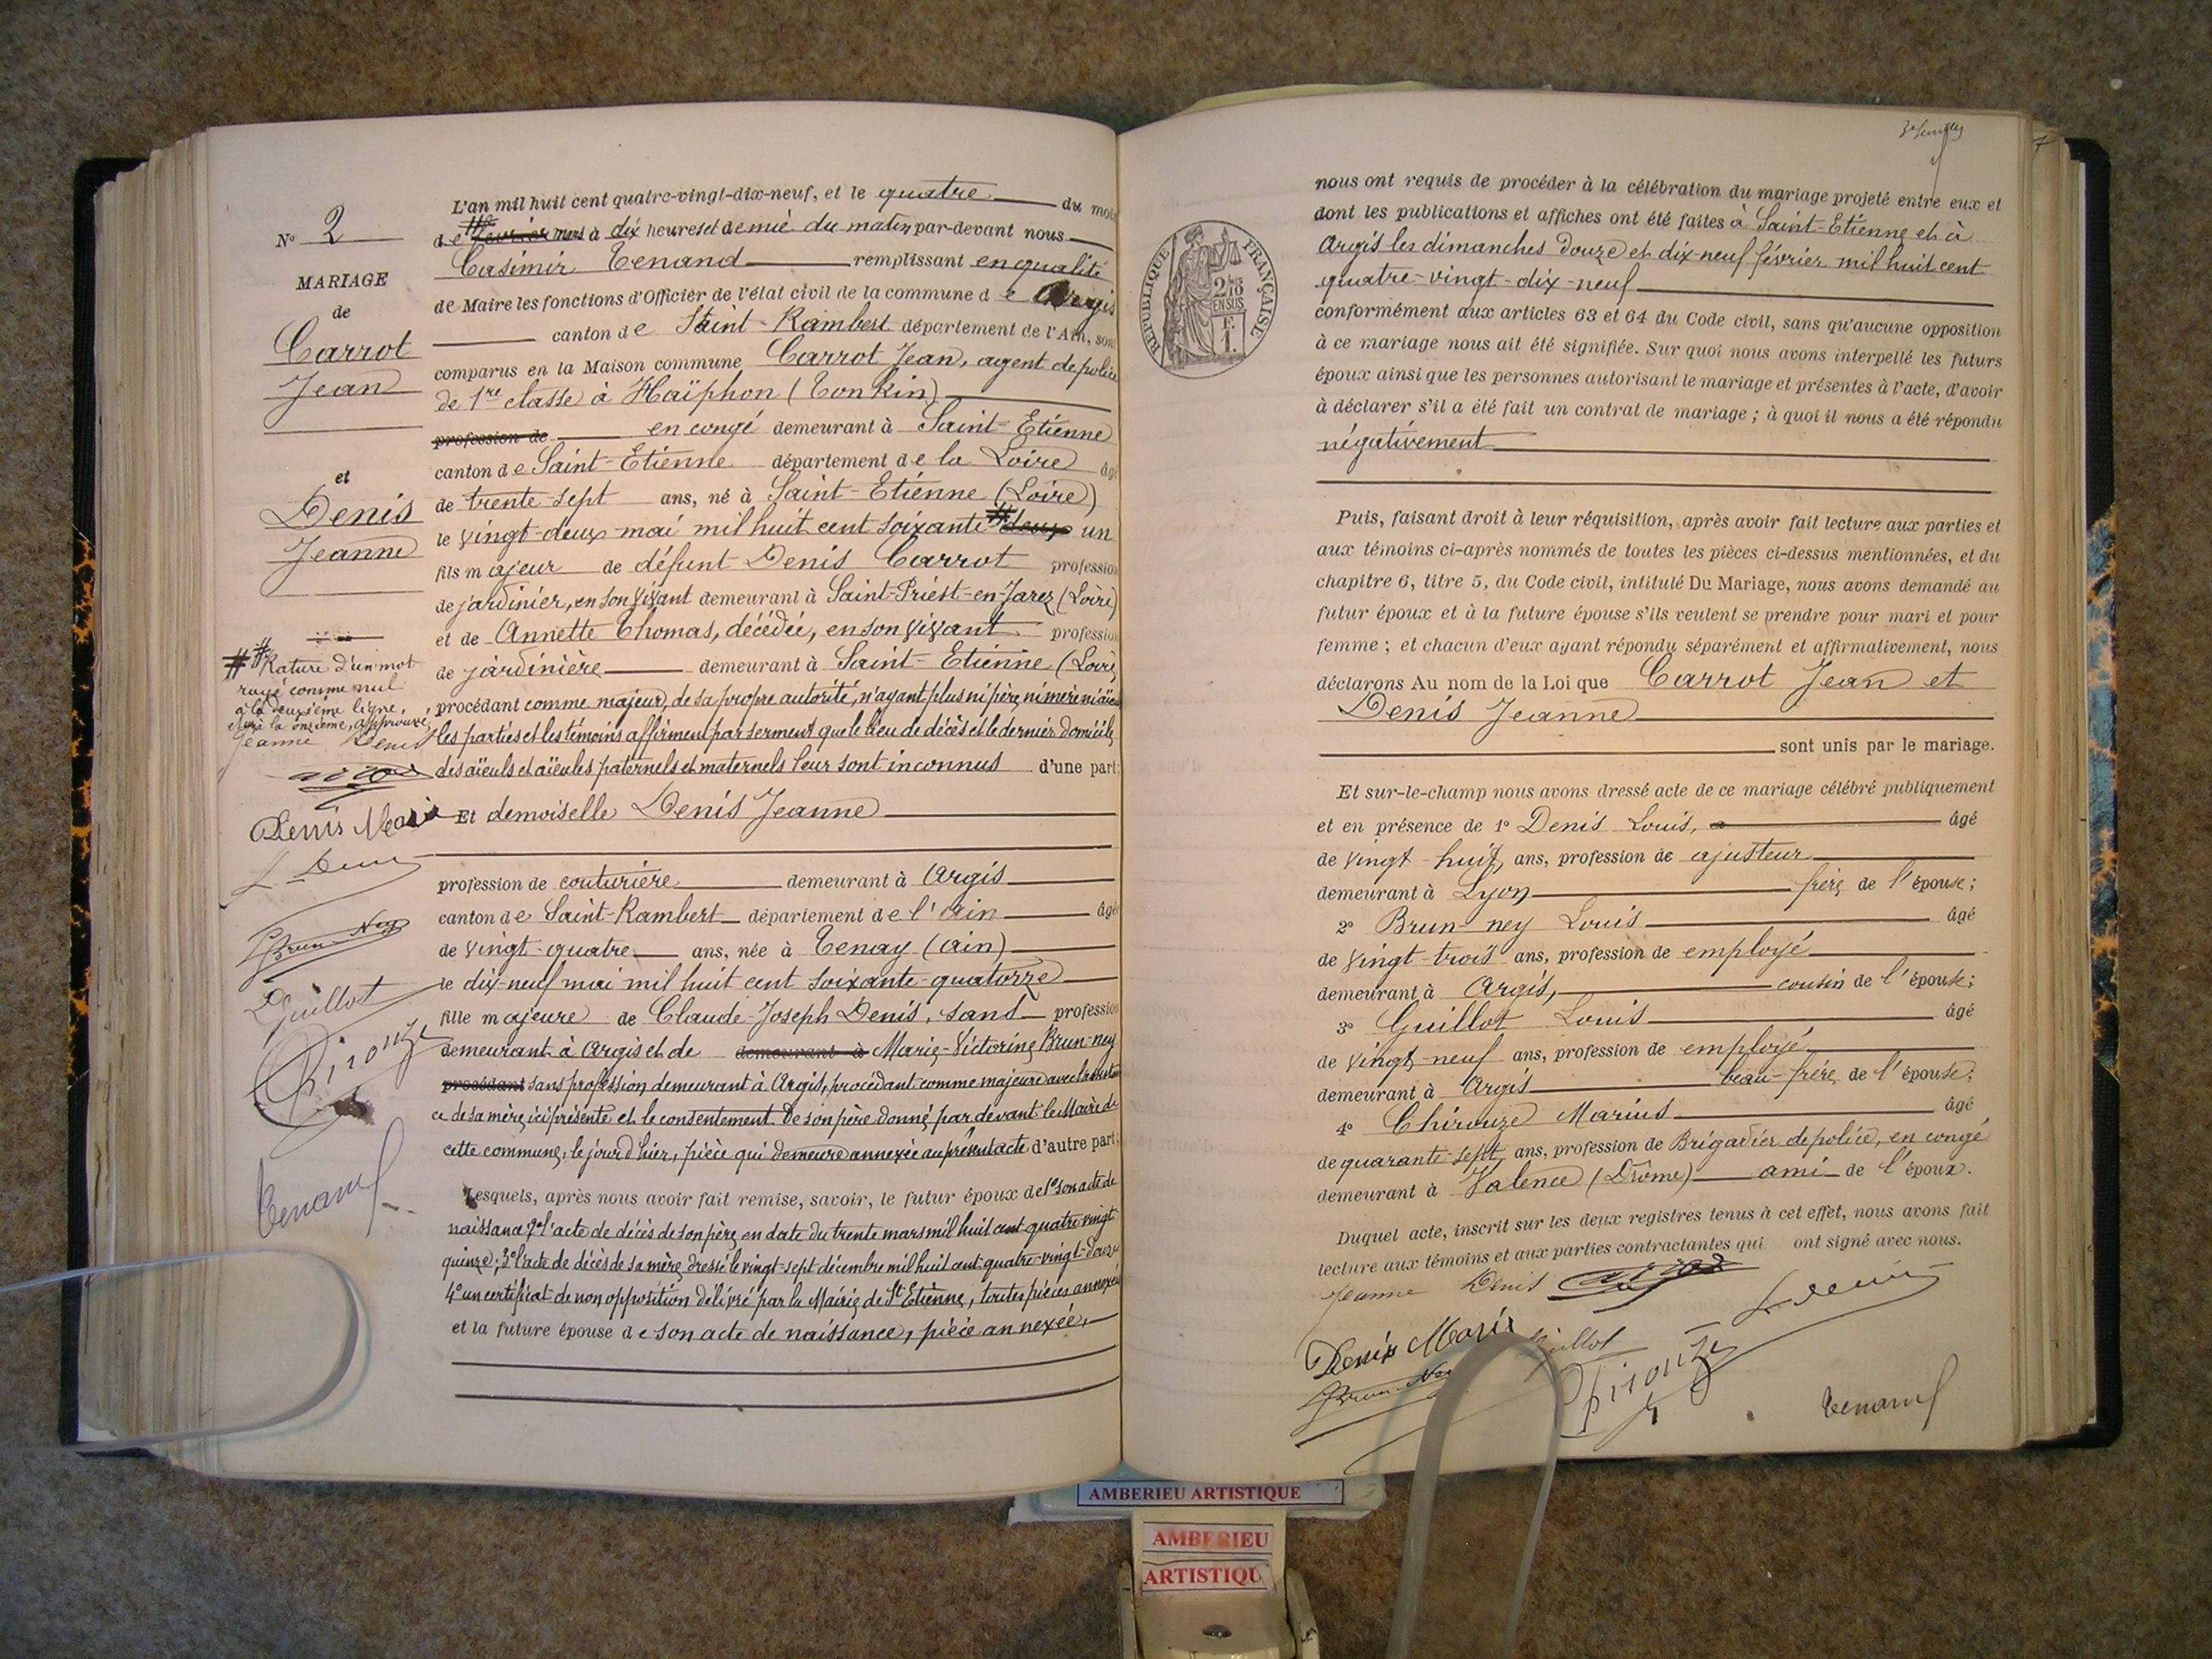 N° 2
MARIAGE
de
Carrot
Jean
et
Denis
Jeanne
Rature d'un mot
rayé comme nul
à la deuxième ligne,
et à la onzième, approuvé,
Jeanne Denis
Denis Marie
L Denis
Brun-Ney
Guillot
Chirouze
Tenand
L'an mil huit cent quatre-vingt-dix-neuf, et le quatre du mois
de février mars à dix heures et demie du matin par-devant nous
Casimir Tenand remplissant en qualité
de Maire les fonctions d'Officier de l'état civil de la commune de Argis
canton de Saint-Rambert département de l'Ain, sont
comparus en la Maison commune Carrot Jean, agent de police
de 1re classe à Haïphon (Tonkin)
profession de en congé demeurant à Saint-Etienne
canton de Saint-Etienne département de la Loire âgé
de trente-sept ans, né à Saint-Etienne (Loire)
le vingt-deux mai mil huit cent soixante deux un
fils majeur de défunt Denis Carrot profession
de jardinier, en son vivant demeurant à Saint-Priest-en-Jarez (Loire)
et de Annette Thomas, décédée, en son vivant profession
de jardinière demeurant à Saint-Etienne (Loire)
procédant comme majeur, de sa propre autorité, n'ayant plus ni père, ni mère ni aïeux
les parties et les témoins affirment par serment que le lieu de décès et le dernier domicile
des aïeuls et aïeules paternels et maternels leur sont inconnus d'une part;
Et demoiselle Denis Jeanne
profession de couturière demeurant à Argis
canton de Saint-Rambert département de l'Ain âgée
de vingt-quatre ans, née à Tenay (Ain)
le dix-neuf mai mil huit cent soixante-quatorze
fille majeure de Claude-Joseph Denis, sans profession
demeurant à Argis et de demeurant à Marie-Victorine Brun-ney
procédant sans profession demeurant à Argis, procédant comme majeure avec
ce de sa mère, ici présente et le consentement de son père donné par devant le Maire de
cette commune, le jour d'hier, pièce qui demeure annexée au présent acte d'autre part;
Lesquels, après nous avoir fait remise, savoir, le futur époux de 1° son acte de
naissance 2° l'acte de décès de son père, en date du trente mars mil huit cent quatre vingt
quinze; 3° l'acte de décès de sa mère, dressé le vingt-sept décembre mil huit cent quatre-vingt-douze
4° un certificat de non opposition délivré par la Mairie de St Etienne, toutes pièces annexées
et la future épouse de son acte de naissance, pièce annexée,
7
RÉPUBLIQUE FRANÇAISE
2/10
EN SUS
F.
1.
nous ont requis de procéder à la célébration du mariage projeté entre eux et
dont les publications et affiches ont été faites à Saint-Etienne et à
Argis les dimanches douze et dix-neuf février mil huit cent
quatre-vingt-dix-neuf
conformément aux articles 63 et 64 du Code civil, sans qu'aucune opposition
à ce mariage nous ait été signifiée. Sur quoi nous avons interpellé les futurs
époux ainsi que les personnes autorisant le mariage et présentes à l'acte, d'avoir
à déclarer s'il a été fait un contrat de mariage; à quoi il nous a été répondu
négativement
Puis, faisant droit à leur réquisition, après avoir fait lecture aux parties et
aux témoins ci-après nommés de toutes les pièces ci-dessus mentionnées, et du
chapitre 6, titre 5, du Code civil, intitulé Du Mariage, nous avons demandé au
futur époux et à la future épouse s'ils veulent se prendre pour mari et pour
femme; et chacun d'eux ayant répondu séparément et affirmativement, nous
déclarons Au nom de la Loi que Carrot Jean et
Denis Jeanne
sont unis par le mariage.
Et sur-le-champ nous avons dressé acte de ce mariage célébré publiquement
et en présence de 1° Denis Louis, âgé
de vingt-huit ans, profession de ajusteur
demeurant à Lyon frère de l'épouse;
2° Brun-ney Louis âgé
de vingt-trois ans, profession de employé
demeurant à Argis, cousin de l'épouse;
3° Guillot Louis âgé
de vingt-neuf ans, profession de employé
demeurant à Argis beau-frère de l'épouse;
4° Chirouze Marius âgé
de quarante-sept ans, profession de Brigadier de police, en congé
demeurant à Valence (Drôme) ami de l'époux.
Duquel acte, inscrit sur les deux registres tenus à cet effet, nous avons fait
lecture aux témoins et aux parties contractantes qui ont signé avec nous.
Jeanne Denis
L Denis
Denis Marie
Guillot
Brun-Ney
Chirouze
Tenand
AMBERIEU ARTISTIQUE
AMBERIEU
ARTISTIQU